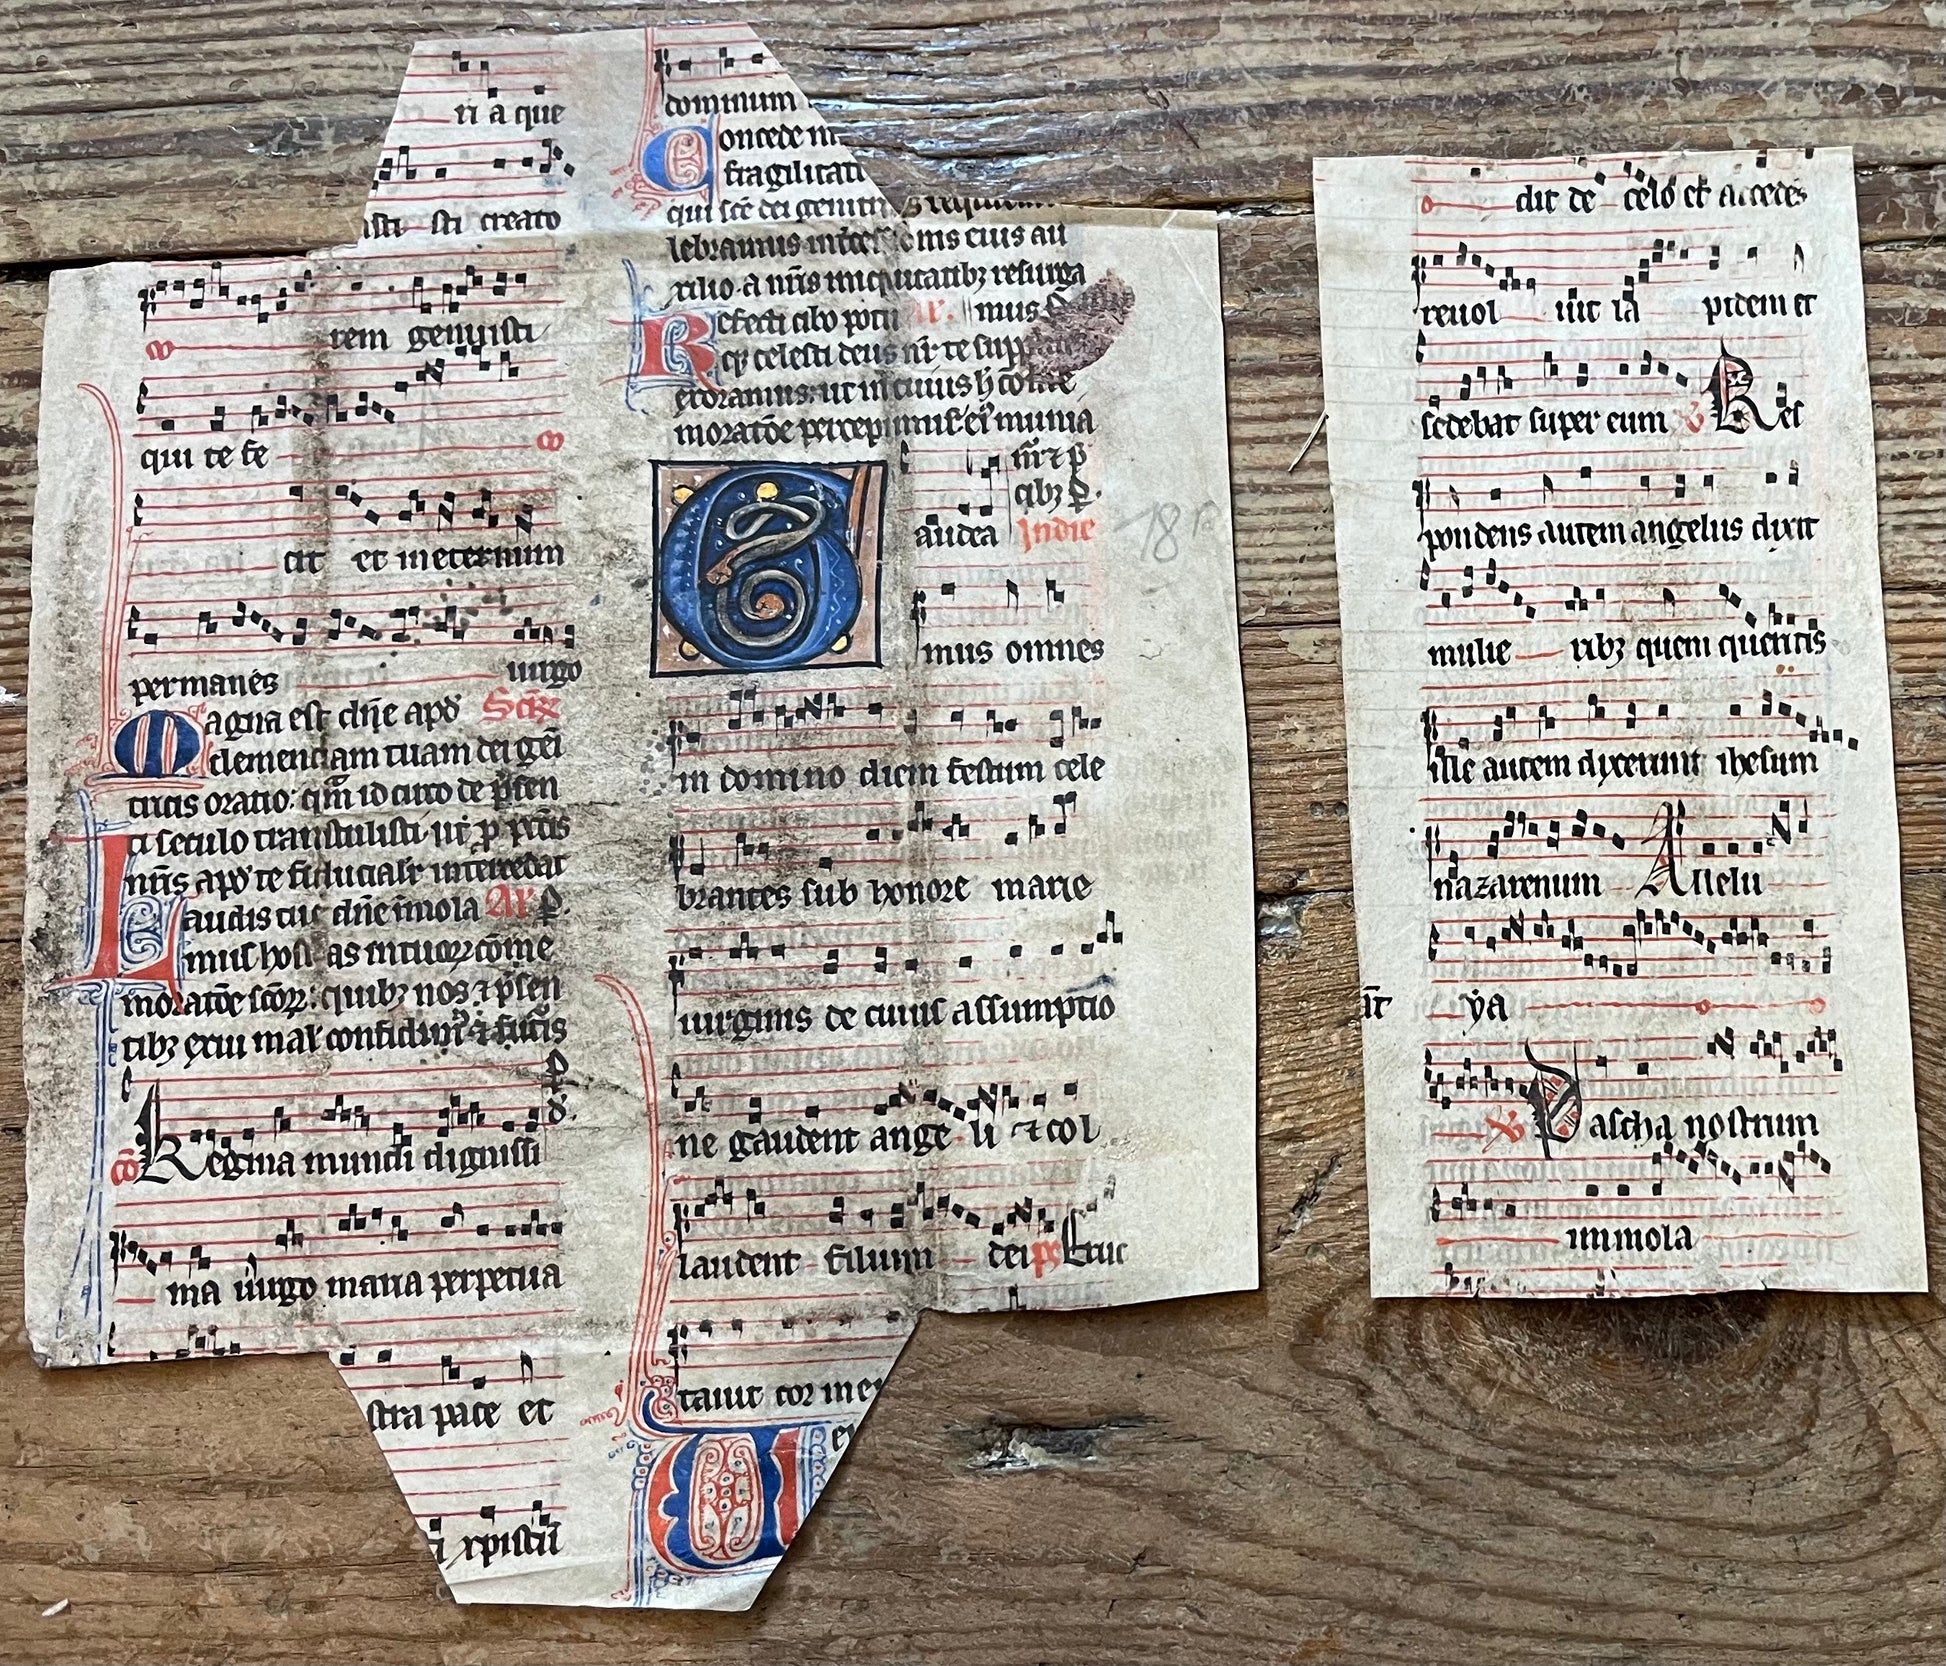 ri a que
isti sti creato
rem genuisti
qui te fe
cit et in eternum
permanes uirgo
Magna est dñe apd̛ Scr̃
clemenciam tuam dei geñ
tricis oratio: qm̃ idcirco de p̃sen
ti seculo transtulisti: ut p̱ pctĩs
nr̃is apd̛ te fiducialr̃ intercedat
Laudis tue dñe im̃ola Ar̃ p̱.
mus hostias in tuoꝝ com̃e
moratõe scõꝝ: quibꝫ nos ⁊ p̃sen
tibꝫ exui mal̃ confidim̃ ⁊ futũis
cõ Regina mundi dignissi
ma uirgo maria perpetua
stra pace et
xpistũ
dominum
Concede m
fragilitati
qui scẽ dei genitri
lebramus intercessionis eius au
xilio a nr̃is iniquitatibꝫ resurga
Refecti cibo potu Ar̃. mus
qꝫ celesti deus nr̃ te supp
exoramus: ut in cuius h̃ com̃e
moratõe percepimus: eiꝰ munia
nr̃ ⁊ p̱
cibꝫ p̱.
Gaudea In die
mus omnes
in domino diem festum cele
brantes sub honore marie
uirginis de cuius assumptio
ne gaudent ange li ⁊ col
laudent filium dei p̃s Eruc
tauit cor meu
18
dit de celo et accedes
reuol uit la pidem et
sedebat super eum ℣ Res
pondens autem angelus dixit
mulie ribꝫ quem queritis
ille autem dixerunt ihesum
nazarenum Allelu
ya
℣ Pascha nostrum
immola